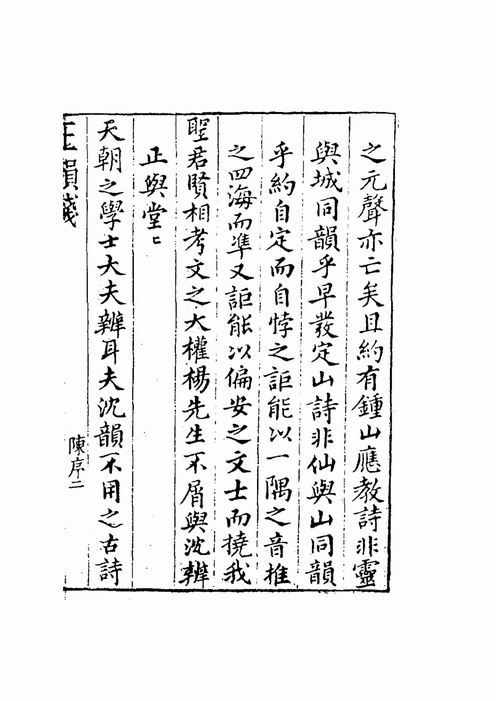 之元聲亦亡矣且約有鍾山應教詩非靈
與城同韻乎早發定山詩非仙與山同韻
乎約自定而自悖之詎能以一隅之音推
之四海而準又詎能以偏安之文士而撓我
聖君賢相考文之大權楊先生不屑與沈辨
正與堂〻
天朝之學士大夫辨耳夫沈韻不用之古詩
正韻箋
陳序二